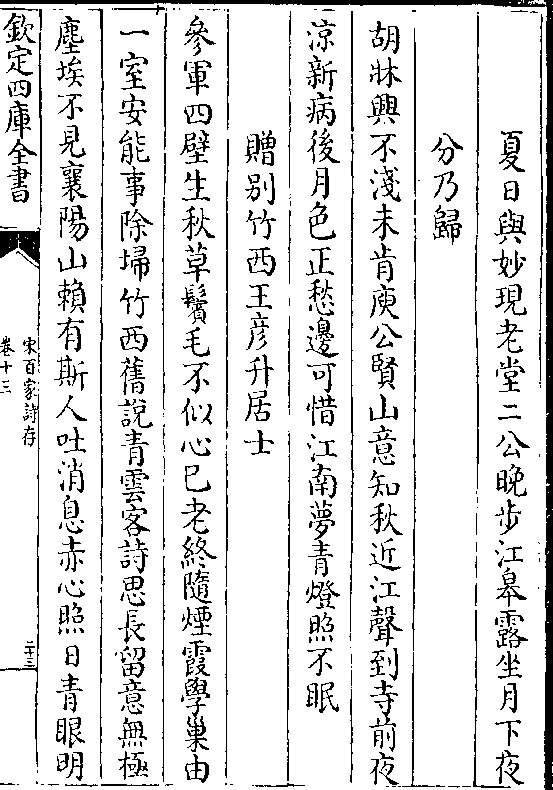 夏日與妙現老堂二公晚步江皋露坐月下夜
分乃歸
胡牀興不淺未肯庾公賢山意知秋近江聲到寺前夜
涼新病後月色正愁邊可惜江南夢青燈照不眠
贈别竹西王彦升居士
參軍四壁生秋草鬢毛不似心已老終隨煙霞學巢由
一室安能事除埽竹西舊說青雲客詩思長留意無極
塵埃不見襄陽山賴有斯人吐消息赤心照日青眼明
欽定四庫全書
宋百家詩存
卷十三
二十三